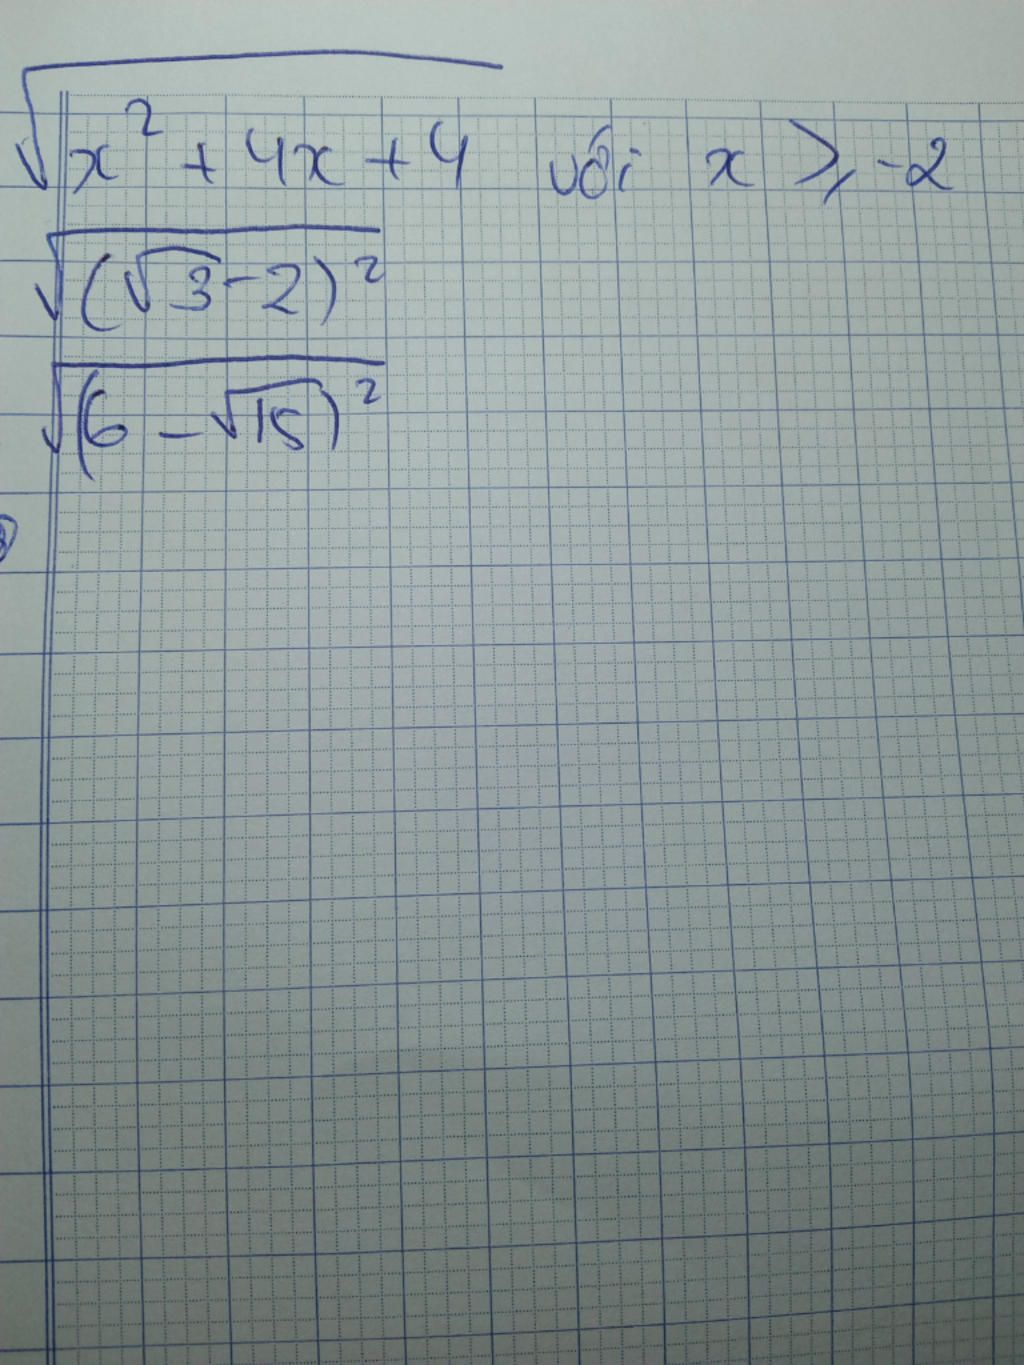 √(x² + 4x + 4) với x ⩾ -2
√((√3 - 2)²)
√((6 - √15)²)